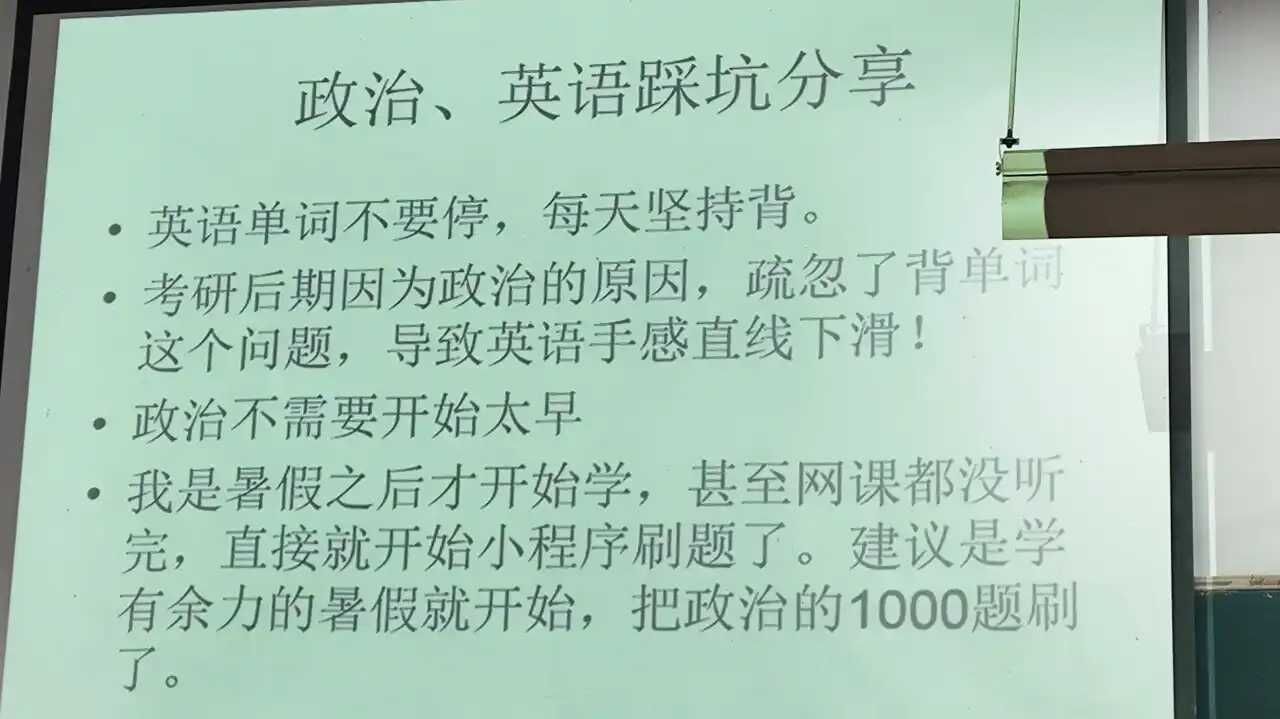 政治、英语踩坑分享
• 英语单词不要停，每天坚持背。
• 考研后期因为政治的原因，疏忽了背单词
这个问题，导致英语手感直线下滑！
• 政治不需要开始太早
• 我是暑假之后才开始学，甚至网课都没听
完，直接就开始小程序刷题了。建议是学
有余力的暑假就开始，把政治的1000题刷
了。